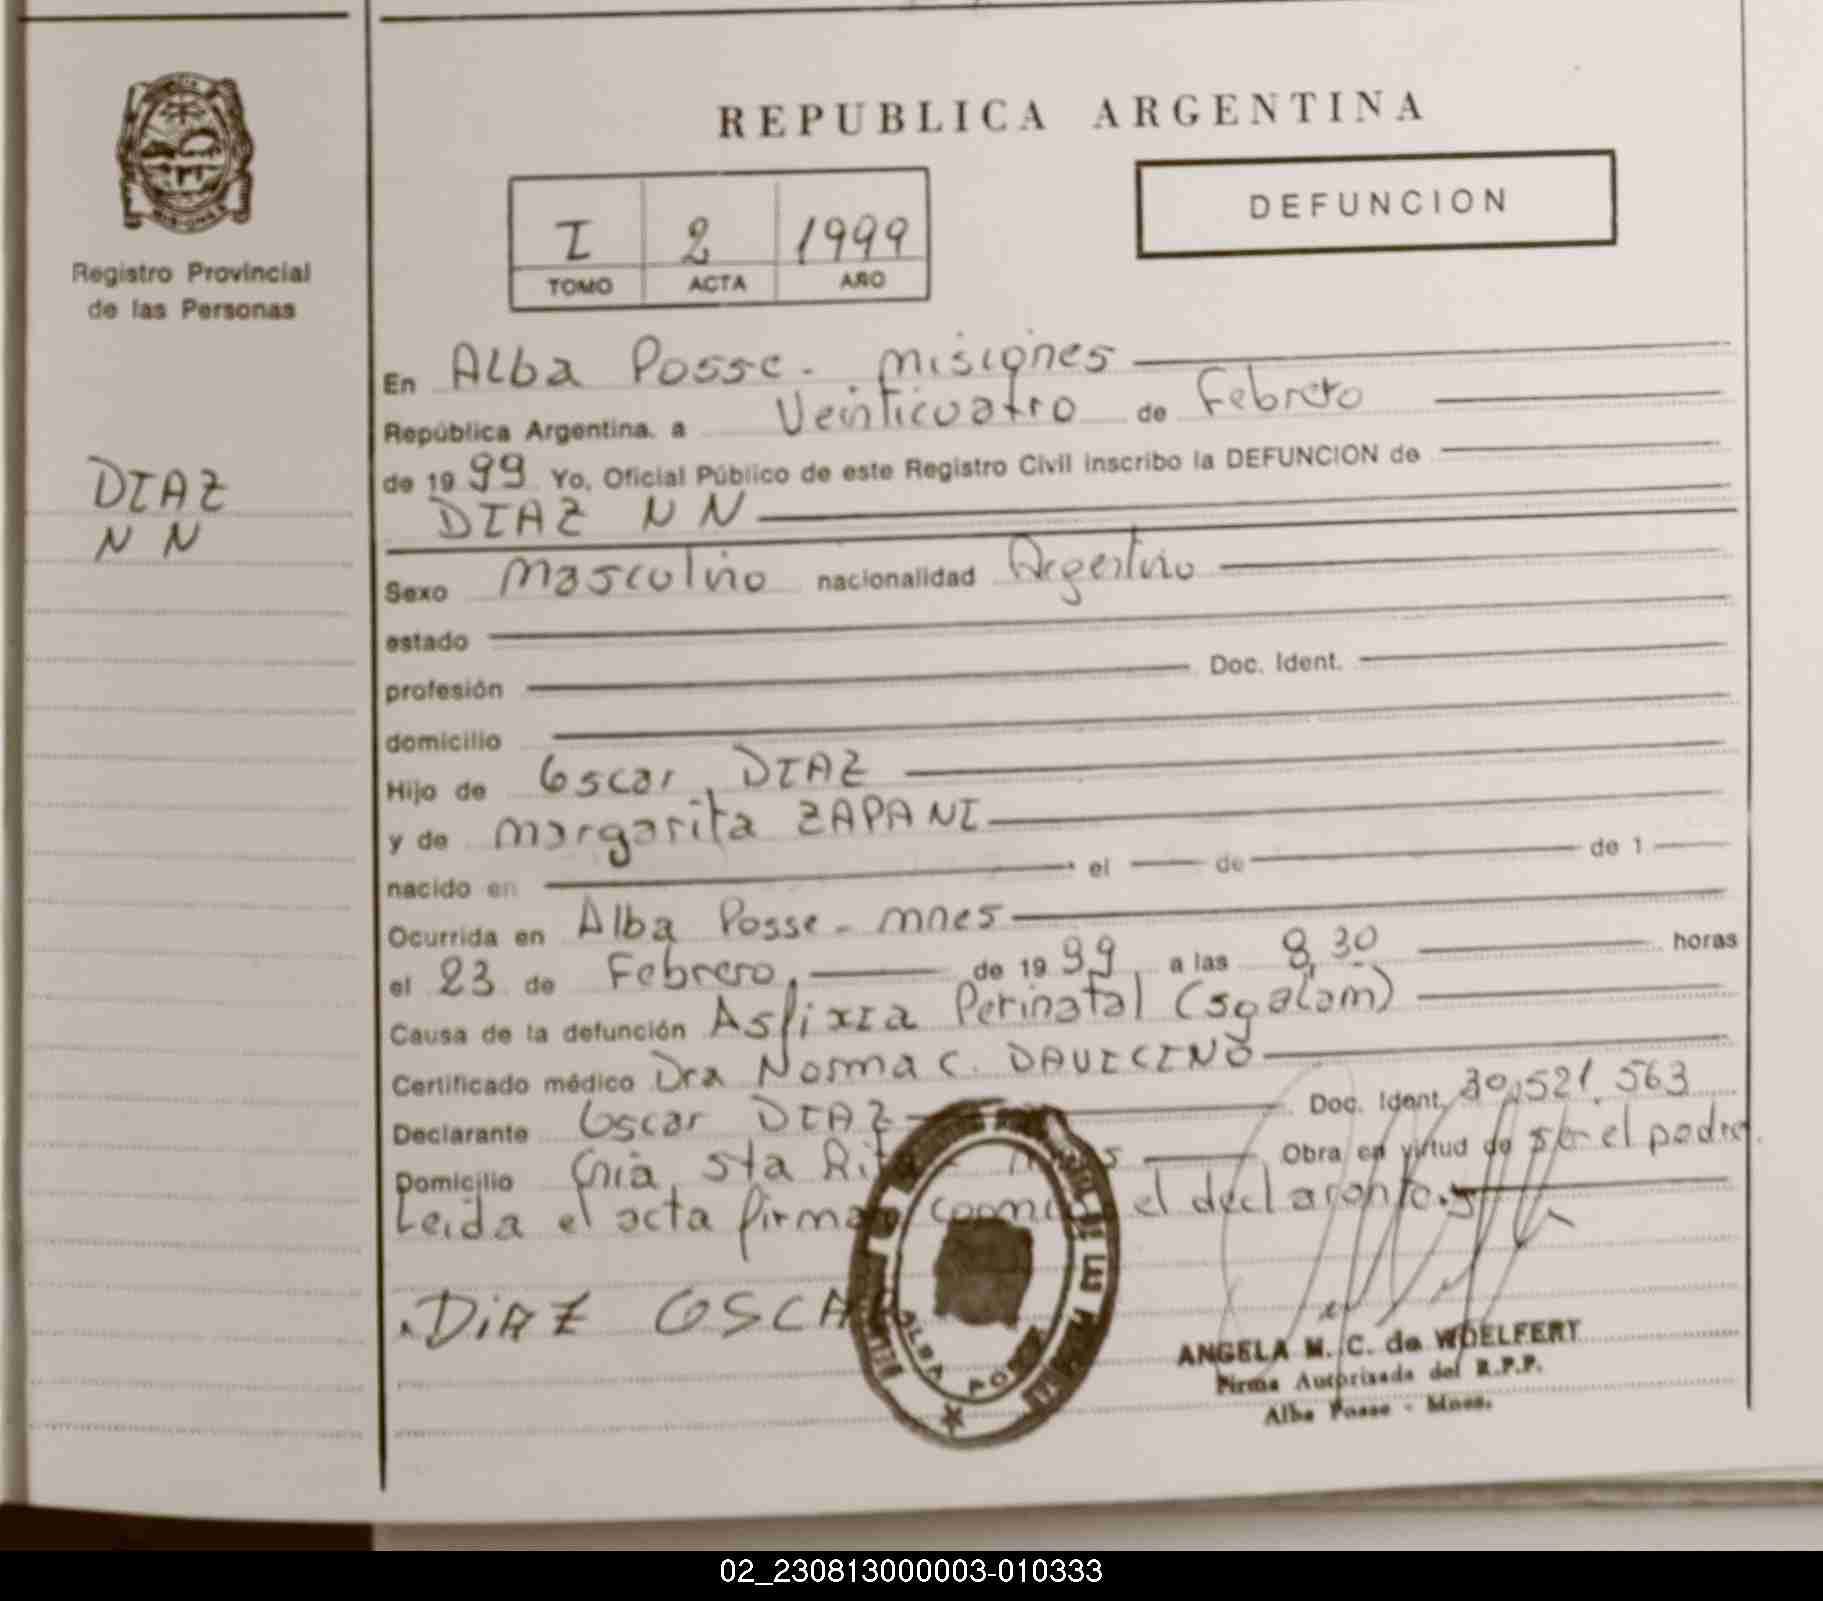 REPUBLICA ARGENTINA
DEFUNCION
I 2 1999
TOMO ACTA AÑO
Registro Provincial
de las Personas
DIAZ
N N
En Alba Posse - Misiones
República Argentina, a Veinticuatro de Febrero
de 1999 Yo, Oficial Público de este Registro Civil inscribo la DEFUNCION de
DIAZ NN
Sexo Masculino nacionalidad Argentino
estado
profesión Doc. Ident.
domicilio
Hijo de Oscar DIAZ
y de Margarita ZAPANI
nacido en el de de 1
Ocurrida en Alba Posse - Mnes
el 23 de Febrero, de 1999 a las 8,30 horas
Causa de la defunción Asfixia Perinatal
Certificado médico Dra Norma C.
Declarante Oscar DIAZ Doc. Ident. 30.521.563
Domicilio sta Rita Obra en virtud de ser el padre.
Leida el acta firma conmigo el declarante.
DiAZ OSCAR
ALBA POSSE
ANGELA M. C. de WOELFERT
Firma Autorizada del R.P.P.
Alba Posse - Mnes.
02_230813000003-010333